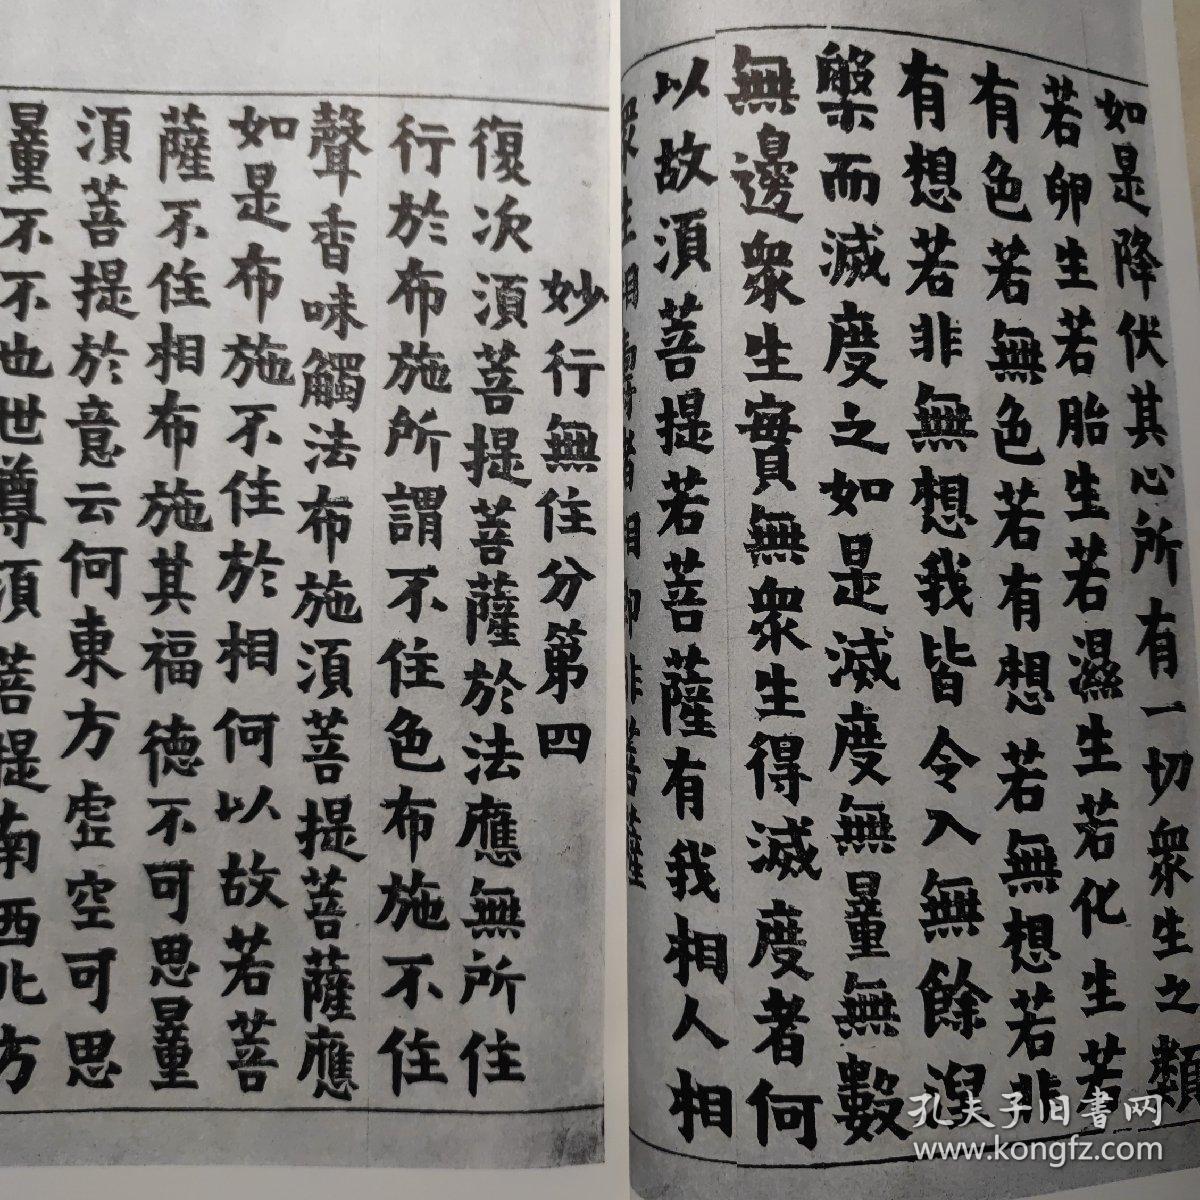 如是降伏其心所有一切衆生之類
若卵生若胎生若濕生若化生若
有色若無色若有想若無想若非
有想若非無想我皆令入無餘涅
槃而滅度之如是滅度無量無數
無邊衆生實無衆生得滅度者何
以故須菩提若菩薩有我相人相
衆生相壽者相即非菩薩
妙行無住分第四
復次須菩提菩薩於法應無所住
行於布施所謂不住色布施不住
聲香味觸法布施須菩提菩薩應
如是布施不住於相何以故若菩
薩不住相布施其福德不可思量
須菩提於意云何東方虛空可思
量不不也世尊須菩提南西北方
孔夫子旧书网
www.kongfz.com